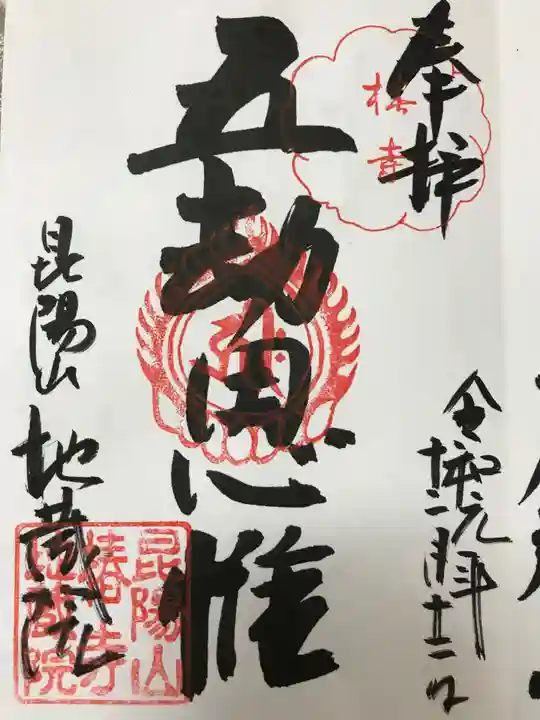 奉拝
椿寺
令和元年
十二月十二日
五劫思惟
昆陽山
地蔵院
昆陽山
椿寺
地蔵院